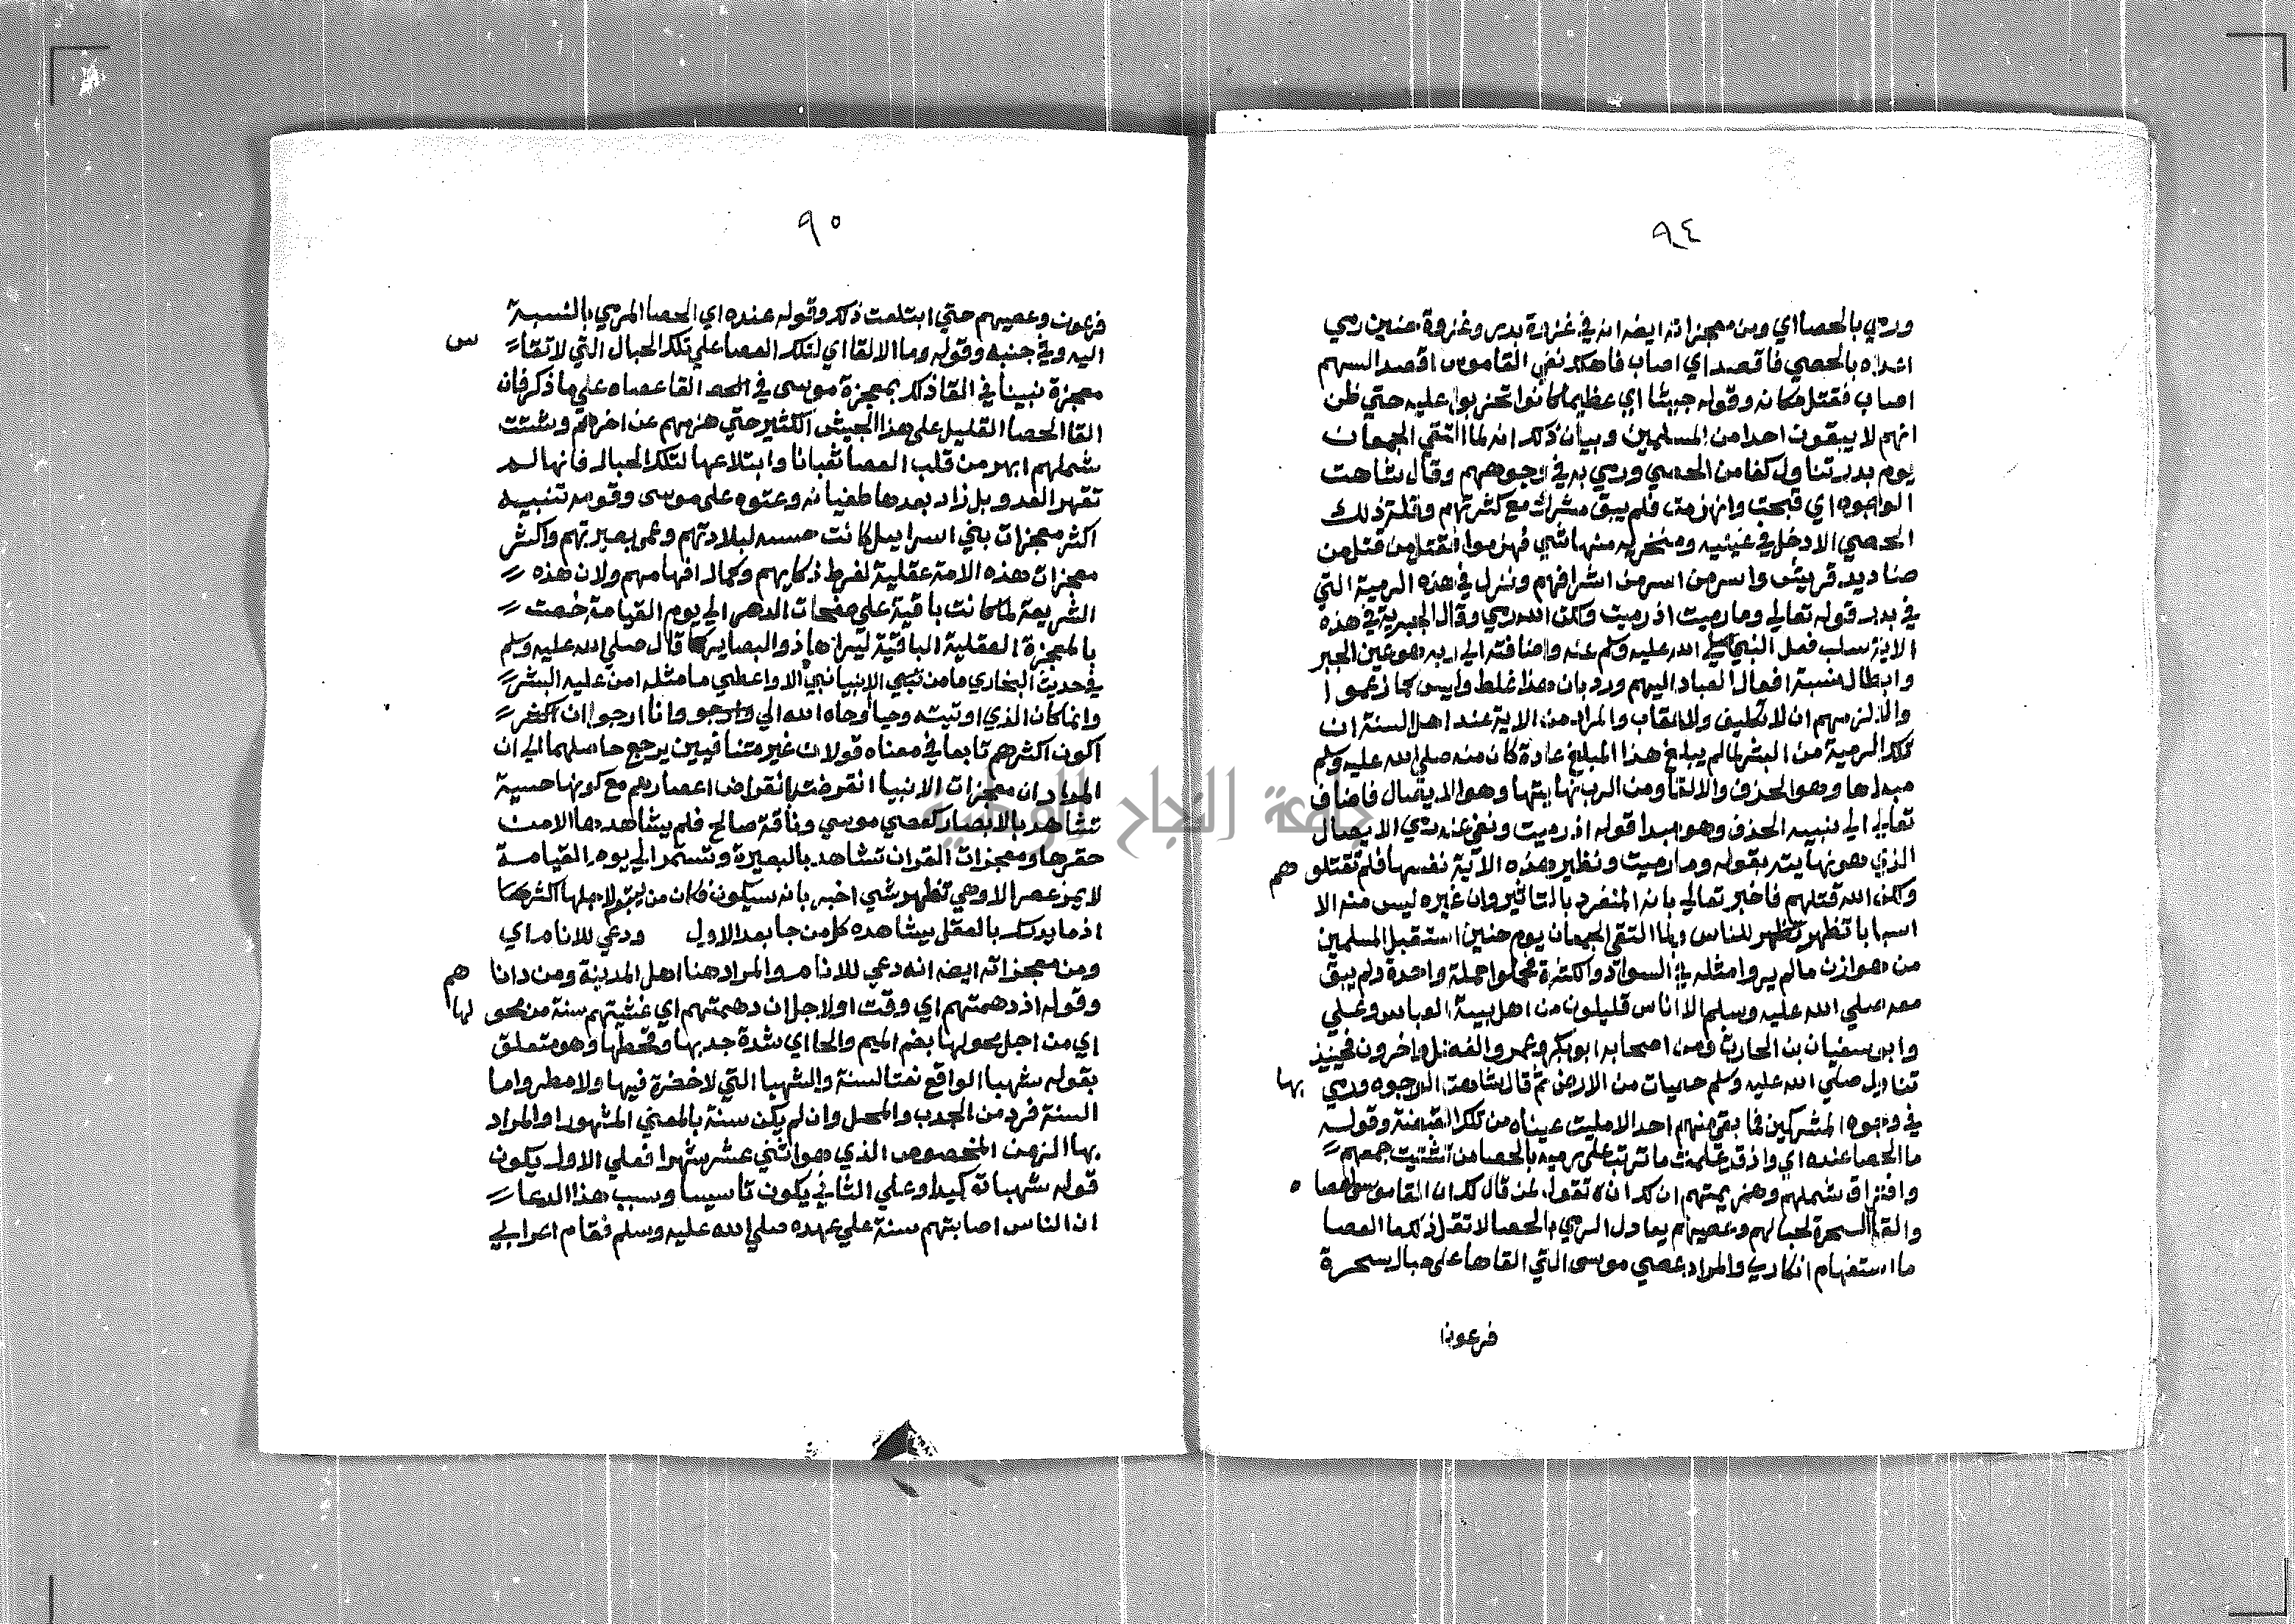 ٩٤
ورمي بالحصا اي ومن معجزاته ايضا انه في غزوة بدر وغزوة حنين رمي
اعداه بالحصي فاقصد اي اصاب فاهلك نفي القاموس اقصد السهم
اصاب فقتل مكانه وقوله جيشا اي عظيما كانوا تحزبوا عليه حتي ظن
انهم لا يبقون احدا من المسلمين وبيان ذلك انه لما التقي الجمعان
يوم بدر تناول كفا من الحصي ورمي به في وجوههم وقال شاهت
الوجوه اي قبحت وانهزمت فلم يبق مشرك مع كثرتهم وقلة ذلك
الحصي الا دخل في عينيه ومنخريه منها شي فهزموا فقتل من قتل من
صناديد قريش واسر من اسر من اشرافهم ونزل في هذه الرمية التي
في بدر قوله تعالي وما رميت اذ رميت ولكن الله رمي وقال الجبرية في هذه
الاية سلب فعل النبي صلي الله عليه وسلم عنه واضافته الي ربه هو عين الجبر
وابطال نسبة افعال العباد اليهم ورد بان هذا غلط وليس كما زعموا
والا لزمهم ان لا تكليف ولا عقاب والمراد من الاية عند اهل السنة ان
تلك الرمية من البشر لما لم يبلغ هذا المبلغ عادة كان منه صلي الله عليه وسلم
مبداها وهو الحذف والالقا ومن الرب نهايتها وهو الايصال فاضاف
تعالي الي نبيه الحذف وهو مبدا قوله اذ رميت ونفي عنه رمي الايصال
الذي هو نهايته بقوله وما رميت ونظير هذه الاية نفسها فلم تقتلوهم
ولكن الله قتلهم فاخبر تعالي بانه المنفرد بالتاثير وان غيره ليس منه الا
اسبابا تظهر للناس ولما التقي الجمعان يوم حنين استقبل المسلمين
من هوازن ما لم يروا مثله في السواد والكثرة فحملوا حملة واحدة ولم يبق
معه صلي الله عليه وسلم الا اناس قليلون من اهل بيته العباس وعلي
وابو سفيان بن الحارث ومن اصحابه ابو بكر وعمر والفضل واخرون فحينيذ
تناول صلي الله عليه وسلم حصيات من الارض ثم قال شاهت الوجوه ورمي بها
في وجوه المشركين فما بقي منهم احد الا مليت عيناه من تلك القبضة وقوله
ما الحصا عنده اي واذ قد علمت ما ترتب علي رميه بالحصا من تشتيت جمعهم
وافتراق شملهم وهزيمتهم ان لك ان لا تقول لمن قال لك ان القا موسي عصاه
والقا السحرة لحبالهم وعصيهم يعادل الرمي بالحصا لا تقل ذلك ما العصا
ما استفهام انكاري والمراد عصي موسي التي القاها علي حبال سحرة
فرعون
٩٥
فرعون وعصيهم حتي ابتلعت ذلك وقوله عنده اي الحصا المرمي بالنسبة
اليه وفي جنبه وقوله وما الالقا اي لتلك العصا علي تلك الحبال التي لا تقاس
معجزة نبينا في القا ذلك بمعجزة موسي في القا عصاه علي ما ذكر فان
القا الحصا القليل علي هذا الجيش الكثير حتي هزمهم عن اخرهم وشتت
شملهم ابهر من قلب العصا ثعبانا وابتلاعها لتلك الحبال فانها لم
تقهر العدو بل زاد بعدها طغيانه وعتوه علي موسي وقومه تنبيه
اكثر معجزات بني اسراييل كانت حسية لبلادتهم وعمي بصيرتهم واكثر
معجزات هذه الامة عقلية لفرط ذكايهم وكمال افهامهم ولان هذه
الشريعة لما كانت باقية علي صفحات الدهر الي يوم القيامة خصت
بالمعجزة العقلية الباقية ليراها ذو البصاير كما قال صلي الله عليه وسلم
في حديث البخاري ما من نبي الا اعطي ما مثله امن عليه البشر
وانما كان الذي اوتيته وحيا اوحاه الله الي وارجو وانا ارجو ان اكثر
اكون اكثرهم تابعا في معناه قولان غير متنافيين يرجع حاصلهما الي ان
المراد ان معجزات الانبيا انقرضت بانقراض اعصارهم مع كونها حسية
تشاهد بالابصار كعصي موسي وناقة صالح فلم يشاهدها الا من
حضرها ومعجزات القران تشاهد بالبصيرة وتستمر الي يوم القيامة
لا يمر عصر الا وهي تظهر شي اخبر بانه سيكون فكان من يتبع لاجلها اكثر
اذ ما يدرك بالعقل يشاهده كل من جا بعد الاول ودعي للانام اي
ومن معجزاته ايضا انه دعي للانام والمراد هنا اهل المدينة ومن داناهم
وقوله اذ دهمتهم اي وقت او لاجل ان دهمتهم اي غشيتهم سنة من محولها
اي من اجل محولها بضم الميم والحا اي شدة جدبها وقحطها وهو متعلق
بقوله شهبا الواقع نعتا لسنة والشهبا التي لا خضرة فيها ولا مطر واما
السنة فرد من الجدب والمحل وان لم يكن سنة بالمعني المشهور او المراد
بها الزمن المخصوص الذي هو اثني عشر شهرا فعلي الاول يكون
قوله شهبا تاكيدا وعلي الثاني يكون تاسيسا وسبب هذا الدعا
ان الناس اصابتهم سنة علي عهده صلي الله عليه وسلم فقام اعرابي
جامعة النجاح الوطنية